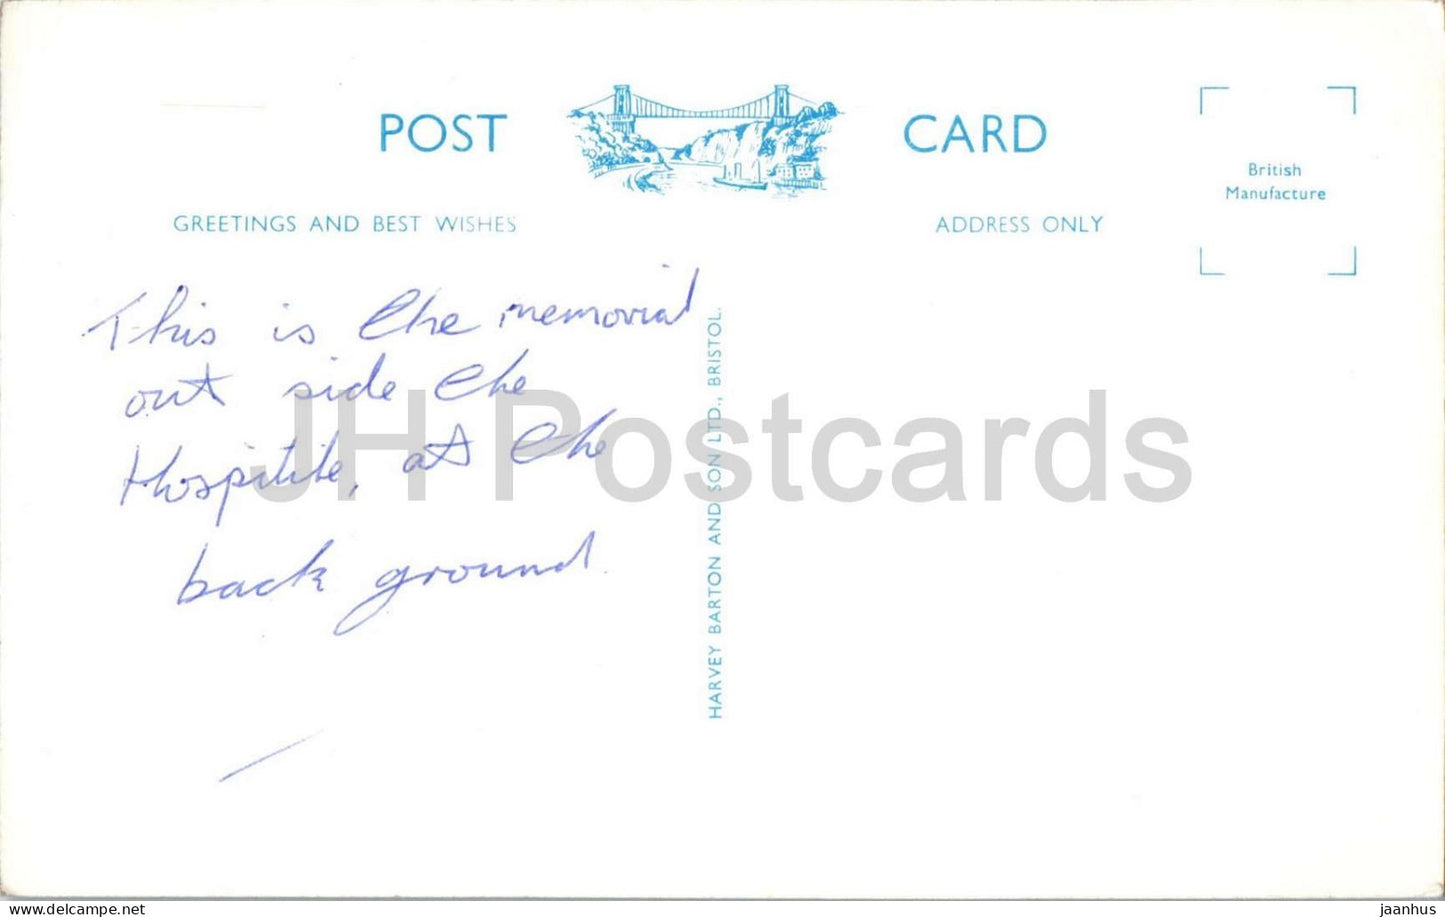 POST CARD
British
Manufacture
GREETINGS AND BEST WISHES
ADDRESS ONLY
This is the memorial
out side the
Hospitile, at the
back ground
HARVEY BARTON AND SON LTD., BRISTOL.
JH Postcards
delcampe.net
jaanhus